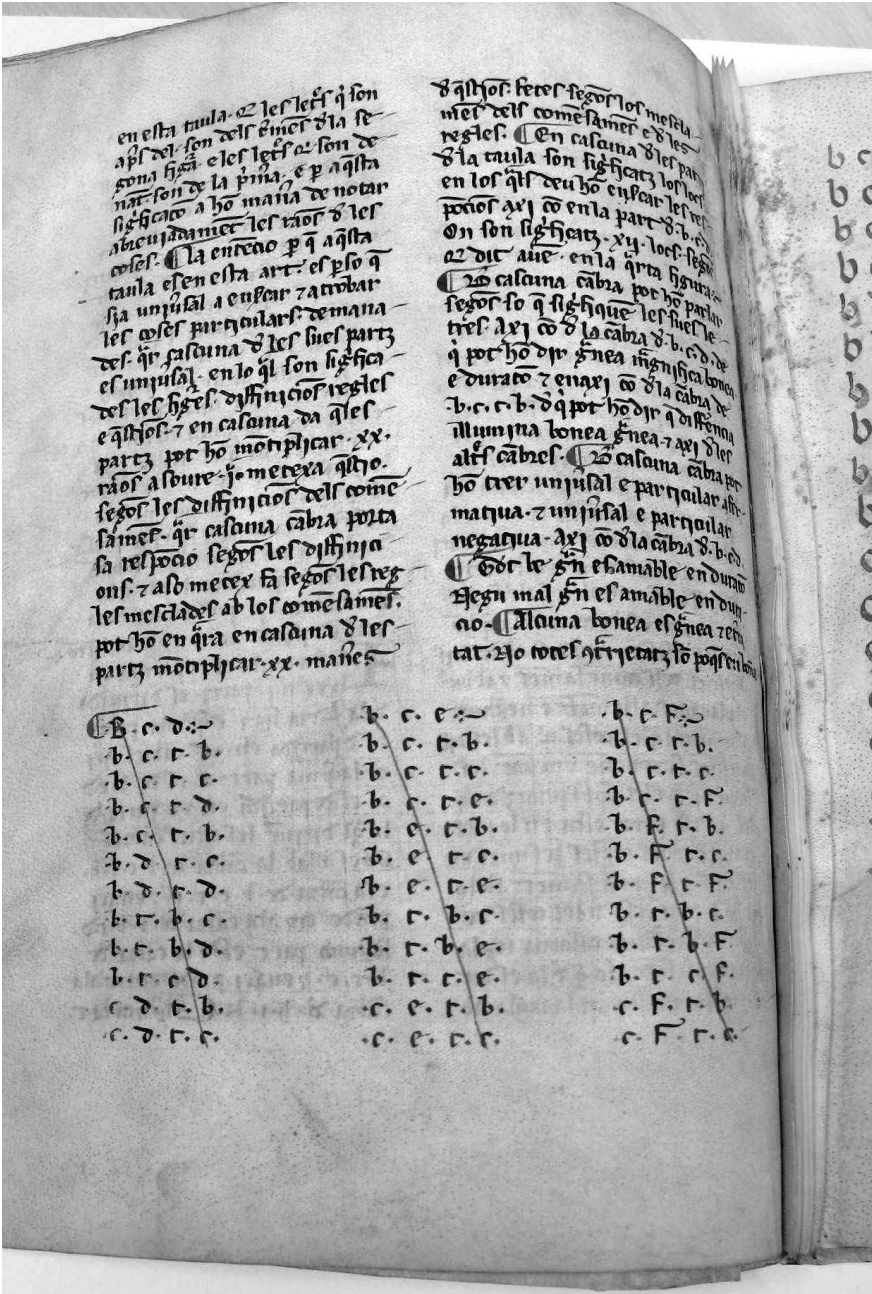 en esta taula. E les letr̄s q̄ son
ap̄s del .t. son dels t̄mēs d̄ la se-
gona fig̃a. e les letr̄s q̄ son de-
nāt. son de la p̄mā. e p̱ aq̄sta
sig̃ficacō a hō manā de notar
abreviadamēt les raōs d̄ les
coses. La entēcio p̱ q̄ aq̄sta
taula es en esta art. es p̱ so q̄
sia univ̄sal a ençercar ⁊ a trobar
les coses particulars demana-
des. q̄r cascuna d̄ les sues partz
es univ̄sal. en lo q̄l son sig̃fica-
des les fig̃es. diffiniciōs regles
e q̄stiōs. ⁊ en cascuna da q̄les
partz pot hō mōtiplicar .xx.
raōs a soure .j̄. metexa q̄stio.
segōs les diffiniciōs dels comē-
samēs. q̄r cascuna cābra porta
sa respōcio segōs les diffinici-
ons. ⁊ aso metex fa segōs les reg-
les mesclades ab los comēsamēs.
pot hō enq̄ra en cascuna d̄ les-
partz mōtiplicar .xx. man̄es
d̄ q̄stiōs. fetes segōs los mescla-
mēs dels comēsamēs e d̄ les
regles. En cascuna d̄ les partz
d̄ la taula son sig̃ficatz los locs
en los q̄ls deu hō ençercar les res-
pōcios axi cō en la part d̄ .b.c.d.
On son sig̃ficatz .xij. locs. segōs
q̄ dit avē. en la q̄rta figura.
P̱ cascuna cābra pot hō parlar
segōs so q̄ sig̃fiquē les sues le-
tres. axi cō d̄ la cābra d̄ .b.c.d. de
q̄ pot hō dir g̃nea m̃gnifica bonea
e duratō ⁊ enaxi cō d̄ la cābra de
.b.c.t.b. d̄ q̄ pot hō dir q̄ diffēncia
illumina bonea g̃nea. ⁊ axi d̄ les
altr̄s cābres. P̱ cascuna cābra pot
hō trer univ̄sal e particular afir-
mativa. ⁊ univ̄sal e particular
negativa. axi cō d̄ la cābra d̄ .b.c.d.
Tot be g̃n es amable en duratō
Negu mal g̃n es amable en dura-
cio. Alcuna bonea es g̃nea ⁊ et̄ni
tat. No totes ꝯt̃rietatz sō
B. c. d.
.b. c. t. b.
.b. c. t. c.
.b. c. t. d.
.b. c. t. b.
.b. d. t. c.
.b. d. t. d.
.b. t. b. c.
.b. t. b. d.
.b. t. c. d.
.c. d. t. b.
.c. d. t. c.
.b. c. e.
.b. c. t. b.
.b. c. t. c.
.b. c. t. e.
.b. e. t. b.
.b. e. t. c.
.b. e. t. e.
.b. t. b. c.
.b. t. b. e.
.b. t. c. e.
.c. e. t. b.
.c. e. t. c.
.b. c. F.
.b. c. t. b.
.b. c. t. c.
.b. c. t. F.
.b. F. t. b.
.b. F. t. c.
.b. F. t. F.
.b. t. b. c.
.b. t. b. F.
.b. t. c. F.
.c. F. t. b.
.c. F. t. c.